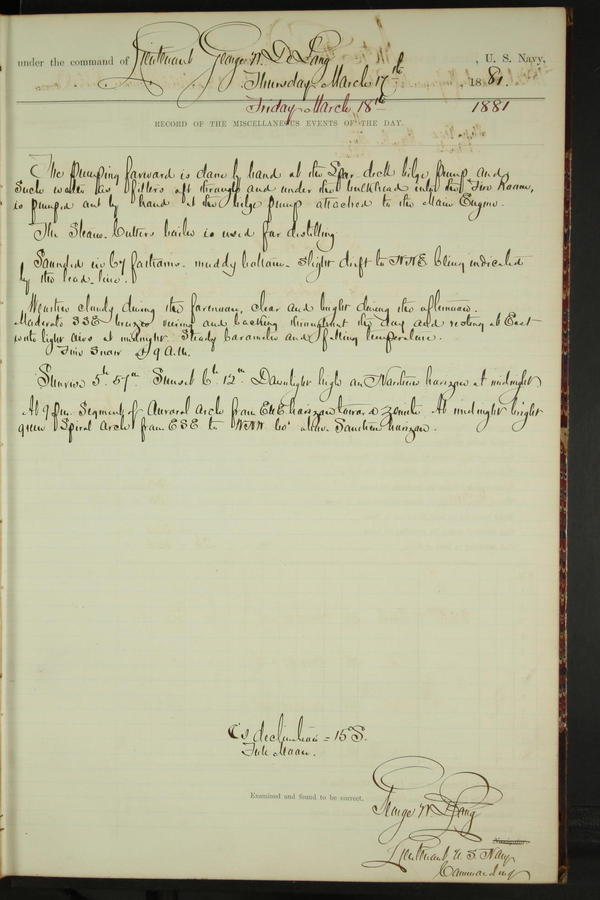 under the command of Lieutenant George W. De Long, U. S. Navy,
Thursday March 17th, 1881.
Friday March 18th 1881
RECORD OF THE MISCELLANEOUS EVENTS OF THE DAY.
The pumping forward is done by hand at the Spar deck bilge pump and
Such water as filters aft through and under the bulkhead into the Fire Room,
is pumped out by hand at the bilge pump attached to the Main Engine.
The Steam Cutters boiler is used for distilling
Sounded in 67 fathoms. muddy bottom. Slight drift to NNE being indicated
by the lead line.
Weather cloudy during the forenoon, clear and bright during the afternoon.
Moderate SSE breeze veering and backing throughout the day and resting at East
with light airs at midnight. Steady barometer and falling temperature.
Fine Snow at 9 A.M.
Sunrise 5h. 57m. Sunset 6h. 12m. Dawnlight high on Northern horizon at midnight
At 9 P.M. Segment of Auroral arch from ENE horizon toward zenith. At midnight bright
green Spiral arch from ESE to WNW 60° above Southern horizon.
C's declination = 15°S.
Full Moon.
Examined and found to be correct.
George W. De Long
Navigator.
Lieutenant U. S. Navy
Commanding